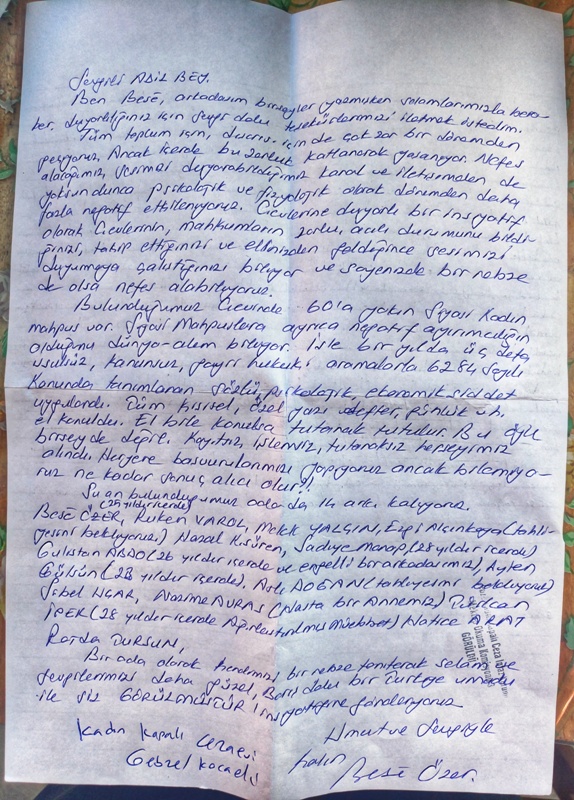 Sevgili ADİL BEY.
Ben Besê, arkadaşım birşeyler yazmışken selamlarımızla bera-
ber, duyarlılığınız için sevgi dolu teşekkürlerimizi iletmek istedim.
Tüm toplum için, dışarısı için de çok zor bir dönemden
geçiyoruz. Ancak içerde bu zorluk katlanarak yaşanıyor. Nefes
alacağımız, sesimizi duyurabildiğimiz kanal ve iletişimden de
yoksundunca psikolojik ve fizyolojik olarak dönemden daha
fazla negatif etkileniyoruz. Cezevlerine duyarlı bir insiyatif
olarak Cezevlerinin, mahkumların zorlu, acılı durumunu bildi-
ğinizi, takip ettiğinizi ve elinizden geldiğince sesimizi
duyurmaya çalıştığınızı biliyor ve sayenizde bir nebze
de olsa nefes alabiliyoruz.
Bulunduğumuz Cezevinde 60'a yakın Siyasi Kadın
mahpus var. Siyasi Mahpuslara ayrıca negatif ayırımcılığın
olduğunu dünya-alem biliyor. İşte bir yılda üç defa
usulsüz, kanunsuz, gayri hukuki aramalarla 6284 Sayılı
Kanunda tanımlanan sözlü, psikolojik, ekonomik şiddet
uygulandı. Tüm kişisel, özel yazı defter, günlük vb.
el konuldu. El bile konulsa tutanak tutulur. Bu öyle
birşeyde değil. Kayıtsız, işlemsiz, tutanaksız herşeyimiz
alındı. Heryere başvurularımızı yapıyoruz ancak bilemiyo-
ruz ne kadar sonuç alıcı olur?!
Şu an bulunduğumuz odada 14 arkş kalıyoruz.
(28 yıldır içerde)
Besê ÖZER, Ruken VAROL, Melek YALGIN, Ezgi Alçınkaya (tahli-
yesini bekliyoruz) Hazal Kısüren, Sadiye Manap, (28 yıldır içerde)
Gülistan ABDO (26 yıldır içerde ve engelli bir arkadaşımız), Ayten
Gülsün (28 yıldır içerde), Aslı DOĞAN (tahliyesini bekliyoruz)
Sibel UÇAR, Nazime AVRAS (Hasta bir Annemiz)
İPEK (28 yıldır içerde Ağırlaştırılmış Müebbet) Hatice ARAT
Rozda DURSUN,
Bir oda olarak kendimizi bir nebze tanıtarak selam ve
sevgilerimizi daha güzel, Barış dolu bir Türkiye umudu
ile siz GÖRÜLMÜŞTÜR! insiyatifine gönderiyoruz
Umut ve Sevgiyle
kalın
Besê Özer.
Kadın Kapalı Cezaevi
Gebze/ Kocaeli
GÖRÜLDÜ